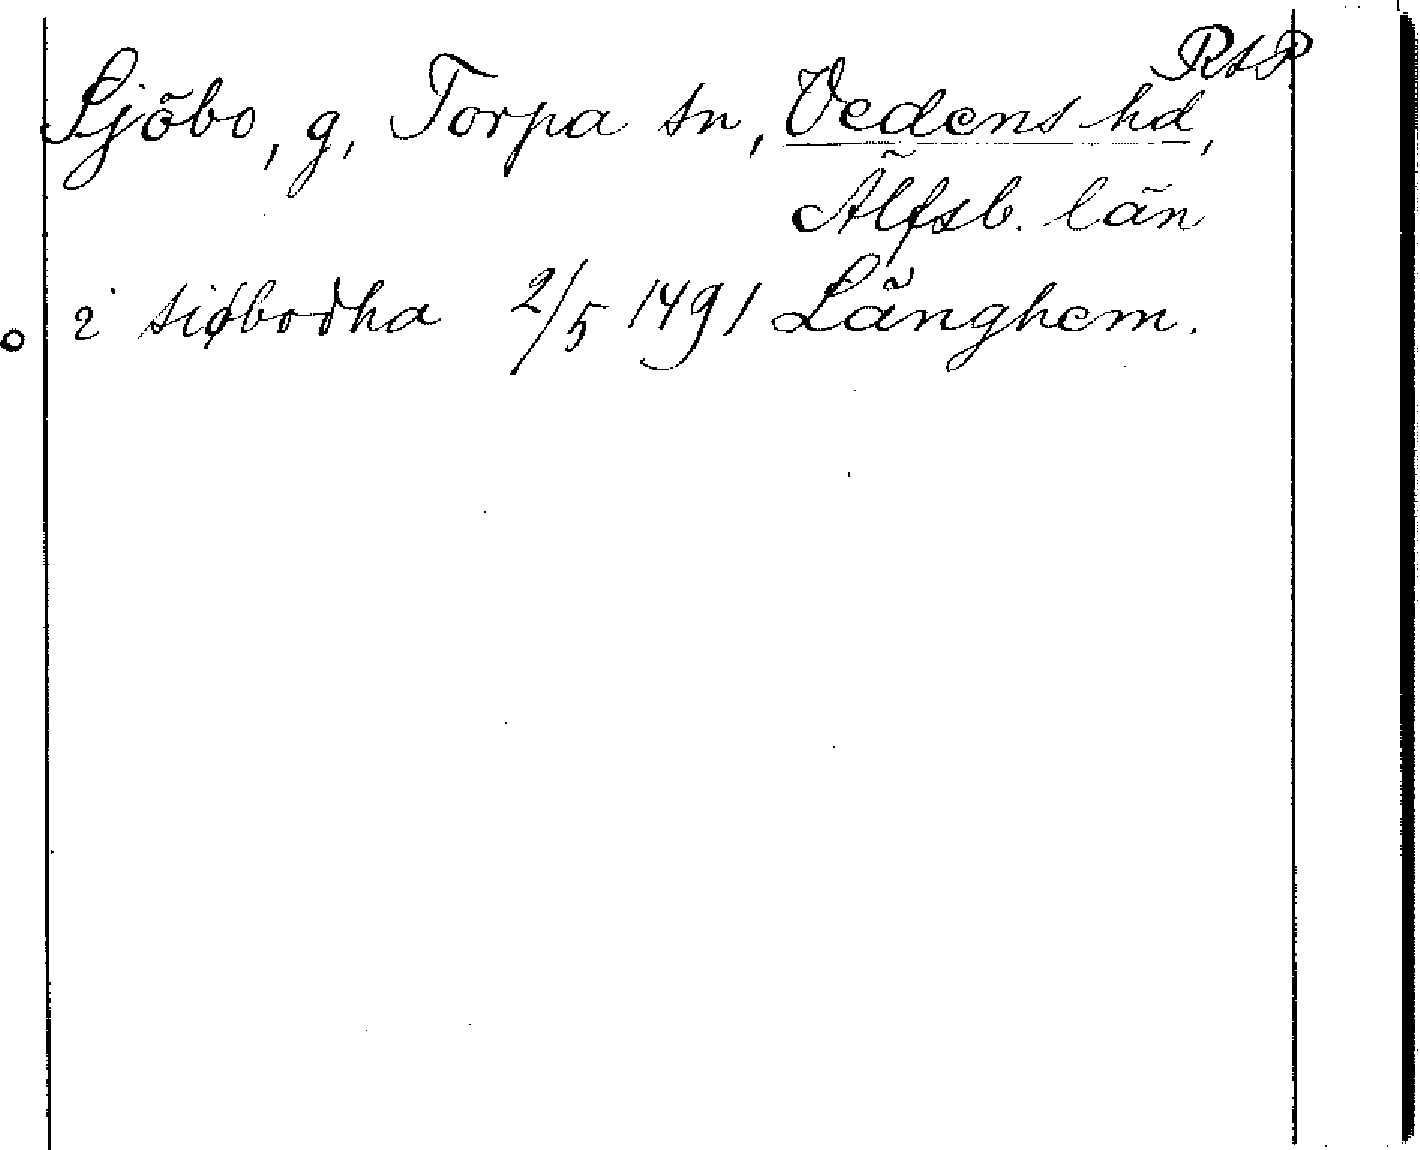 RAP
Sjöbo, g, Torpa sn, Vedens hd,
Älfsb. län
i siøbodha 2/5 1491 Länghem.